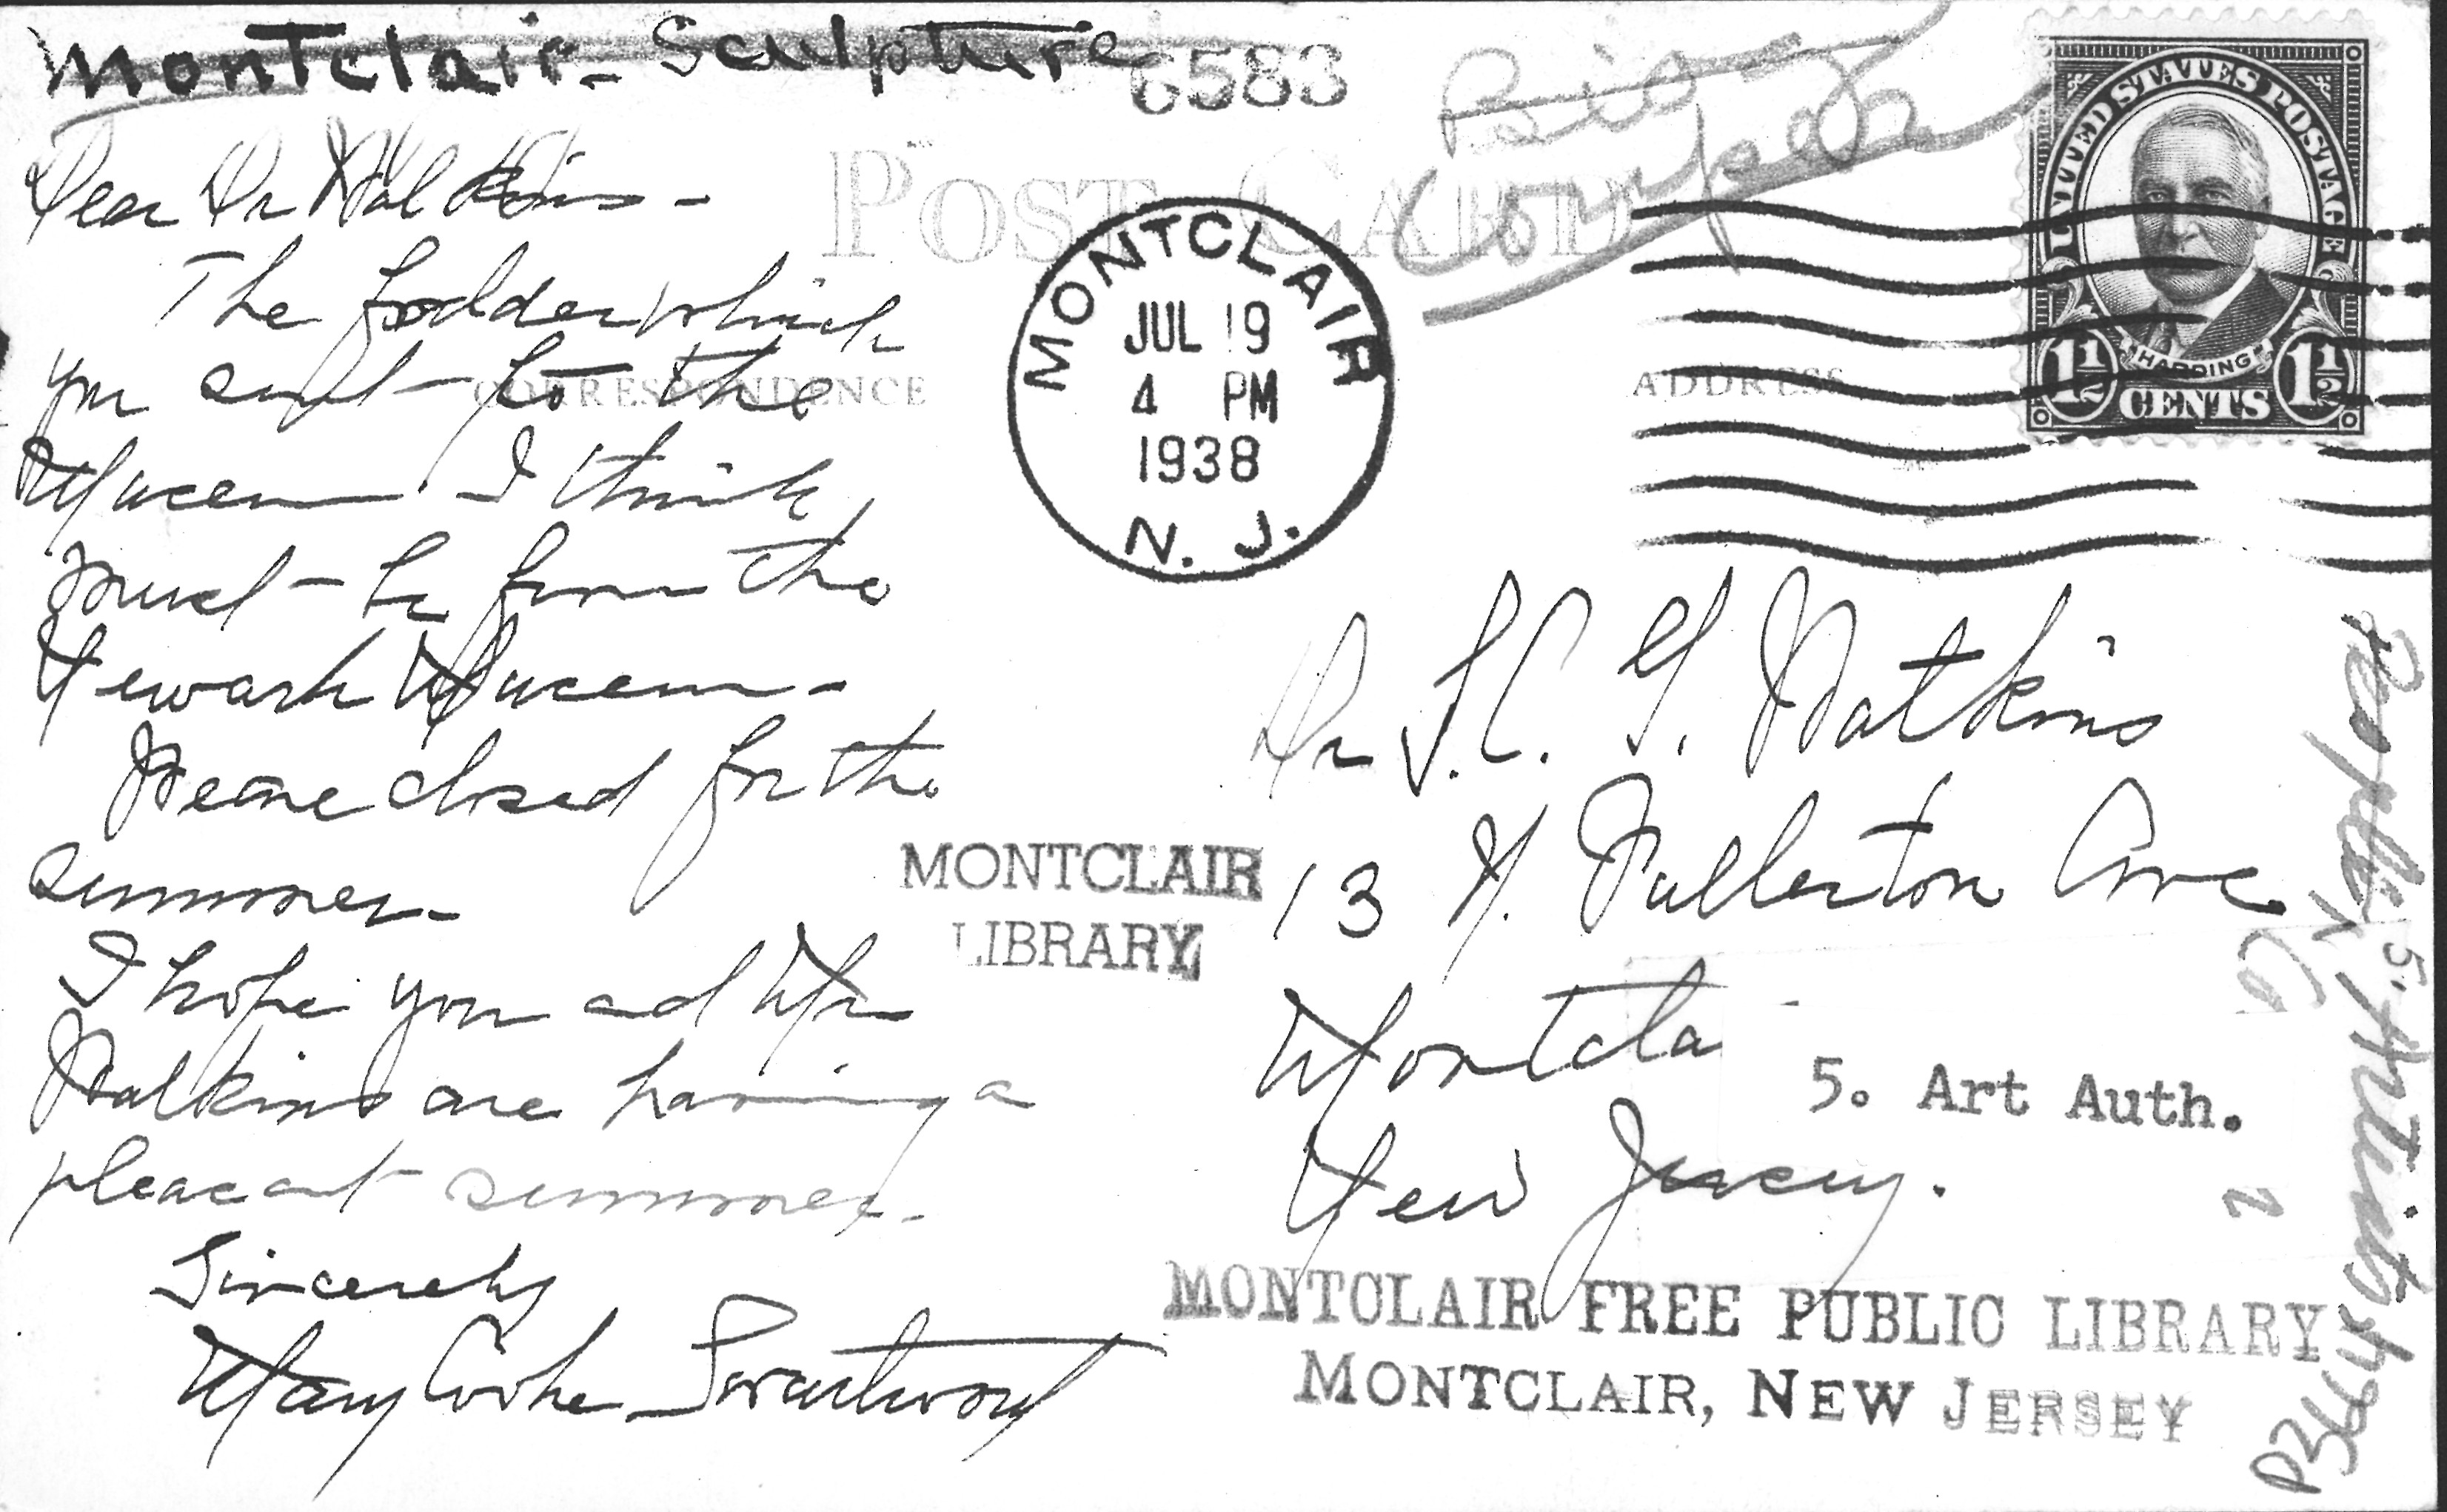 Montclair - Sculpture
6583
POST CARD
Dear Dr Watkins -
The fodder which
you sent to the
Museum I think
must - be from the
Newark Museum -
We are closed for the
summer -
I hope you and Mrs
Watkins are having a
pleasant summer -
Sincerely
Mary Cooke Swartwout
CORRESPONDENCE
ADDRESS
MONTCLAIR
JUL 19
4 PM
1938
N. J.
UNITED STATES POSTAGE
HARDING
1 1/2 CENTS 1 1/2
Dr S. C. G. Watkins
13 N. Fullerton Ave
Montcla
New Jersey.
5. Art Auth.
MONTCLAIR
LIBRARY
MONTCLAIR FREE PUBLIC LIBRARY
MONTCLAIR, NEW JERSEY
People
5. Artists